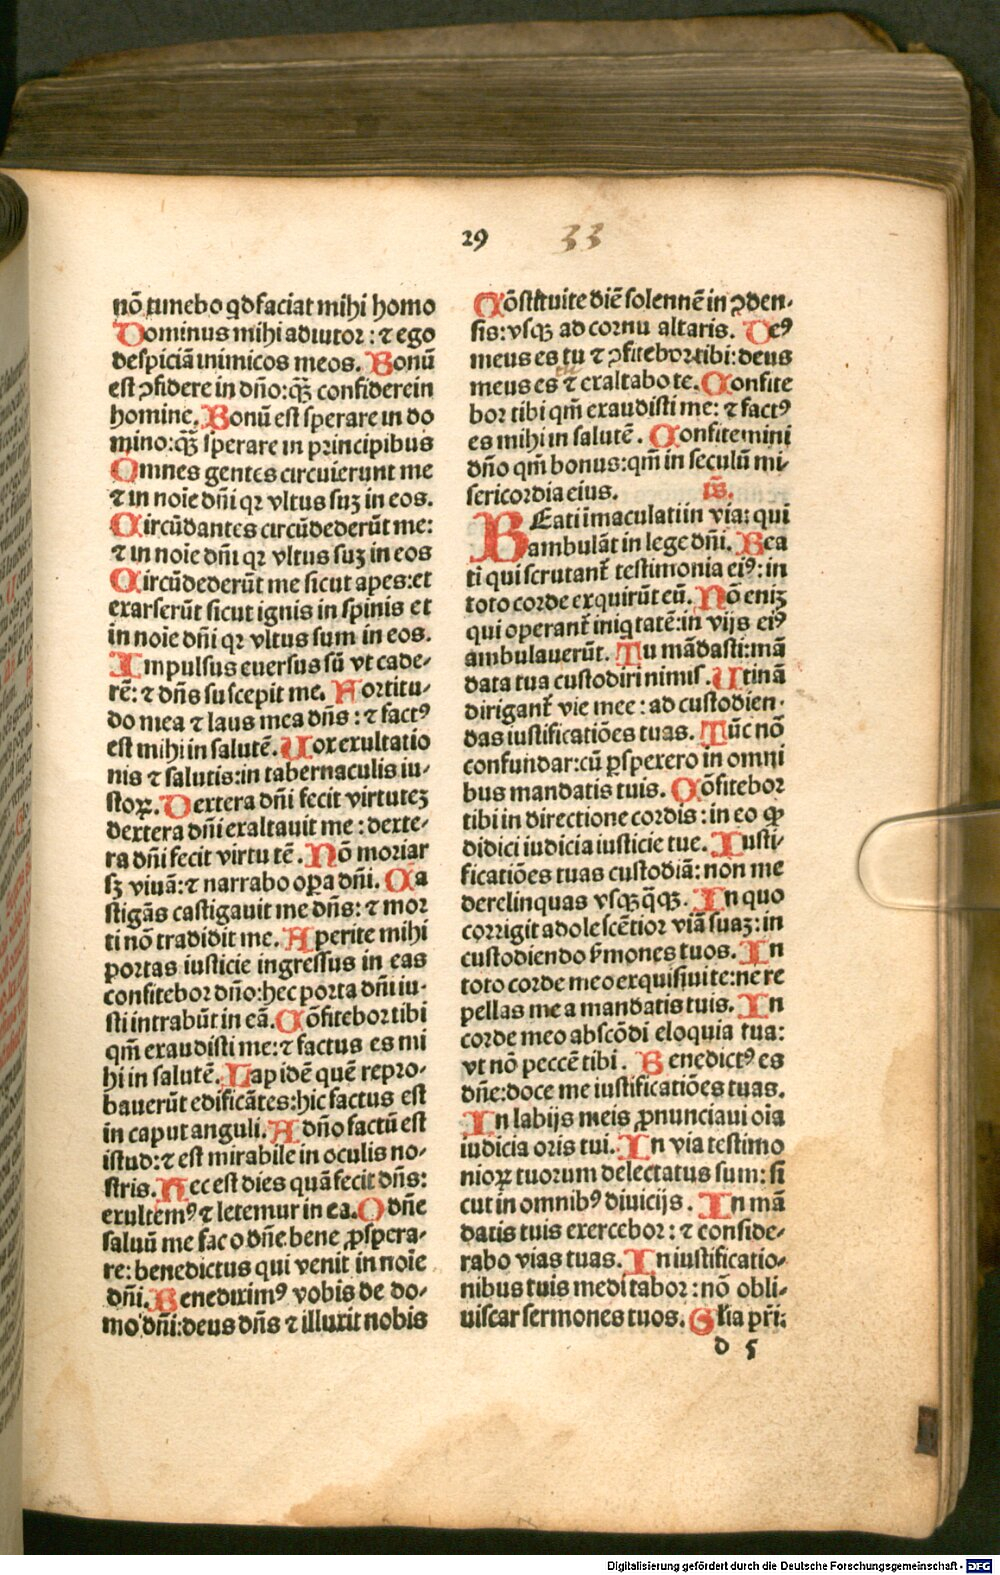 29 33
nō timebo qd faciat mihi homo
Dominus mihi adiutor : ⁊ ego
despiciā inimicos meos. Bonū
est ꝯfidere in dño:qȝ̄ confidere in
homine. Bonū est sperare in do
mino:qȝ̄ sperare in principibus
Omnes gentes circuierunt me
⁊ in noīe dñi qꝛ vltus suȝ in eos.
Circūdantes circūdederūt me:
⁊ in noīe dñi qꝛ vltus suȝ in eos
Circūdederūt me sicut apes:et
exarserūt sicut ignis in spinis et
in noīe dñi qꝛ vltus sum in eos.
Impulsus euersus sū vt cade-
rē: ⁊ dñs suscepit me. Fortitu-
do mea ⁊ laus mea dñs : ⁊ factꝰ
est mihi in salutē. Uox exultatio
nis ⁊ salutis:in tabernaculis iu-
stoꝝ. Dextera dñi fecit virtuteȝ
dextera dñi exaltauit me : dexte-
ra dñi fecit virtutē. Nō moriar
sȝ viuā: ⁊ narrabo oꝑa dñi. Ca
stigās castigauit me dñs: ⁊ mor
ti nō tradidit me. Aperite mihi
portas iusticie ingressus in eas
confitebor dño:hec porta dñi iu-
sti intrabūt in eā. Cōfitebor tibi
qm̄ exaudisti me: ⁊ factus es mi
hi in salutē. Lapidē quē repro-
bauerūt edificātes:hic factus est
in caput anguli. A dño factū est
istud: ⁊ est mirabile in oculis no-
stris. Hec est dies quā fecit dñs:
exultemꝰ ⁊ letemur in ea. O dñe
saluū me fac o dñe bene ꝓspera-
re: benedictus qui venit in noīe
dñi. Benediximꝰ vobis de do-
mo dñi:deus dñs ⁊ illuxit nobis
Cōstituite diē solennē in ꝯden-
sis:vsqȝ ad cornu altaris. Deꝰ
meus es tu ⁊ ꝯfitebor tibi:deus
meus es ⁊ exaltabo te. Confite
bor tibi qm̄ exaudisti me: ⁊ factꝰ
es mihi in salutē . Confitemini
dño qm̄ bonus:qm̄ in seculū mi-
sericordia eius. ip̄s.
BEati imaculati in via: qui
ambulāt in lege dñi. Bea
ti qui scrutant᷑ testimonia eiꝰ: in
toto corde exquirūt eū. Nō eniȝ
qui operant᷑ iniqtatē:in vijs eiꝰ
ambulauerūt. Tu mādasti:mā
data tua custodiri nimis . Utinā
dirigant᷑ vie mee : ad custodien-
das iustificatiōes tuas. Tūc nō
confundar:cū ꝑspexero in omni
bus mandatis tuis. Cōfitebor
tibi in directione cordis : in eo ꝙ
didici iudicia iusticie tue. Iusti-
ficatiōes tuas custodiā: non me
derelinquas vsqȝ q̄qȝ. In quo
corrigit adolescētior viā suaȝ: in
custodiendo ẜmones tuos. In
toto corde meo exquisiui te:ne re
pellas me a mandatis tuis. In
corde meo abscōdi eloquia tua:
vt nō peccē tibi . Benedictꝰ es
dñe:doce me iustificatiōes tuas.
In labijs meis ꝓnunciaui oīa
iudicia oris tui. In via testimo
nioꝝ tuorum delectatus sum: si
cut in omnibꝰ diuicijs . In mā
datis tuis exercebor : ⁊ conside-
rabo vias tuas. In iustificatio-
nibus tuis meditabor : nō obli-
uiscar sermones tuos. Gl̄ia pr̄i:
d 5
Digitalisierung gefördert durch die Deutsche Forschungsgemeinschaft - DFG